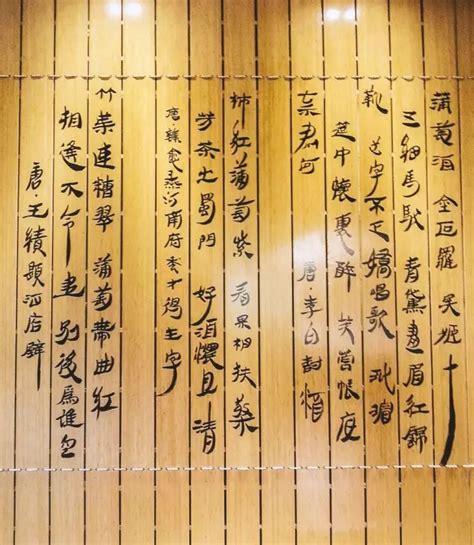 蒲萄酒 金叵羅 吳姬十
三細馬馱 青黛畫眉紅錦
靴 道字不正嬌唱歌 玳瑁
筵中懷裏醉 芙蓉帳底
奈君何 唐·李白對酒
柿紅蒲萄紫 看果相扶檠
芳茶出蜀門 好酒濃且清
唐·韓愈燕河南府秀才得生字
竹葉連糟翠 蒲萄帶曲紅
相逢不令盡 別後為誰空
唐·王績題酒店壁